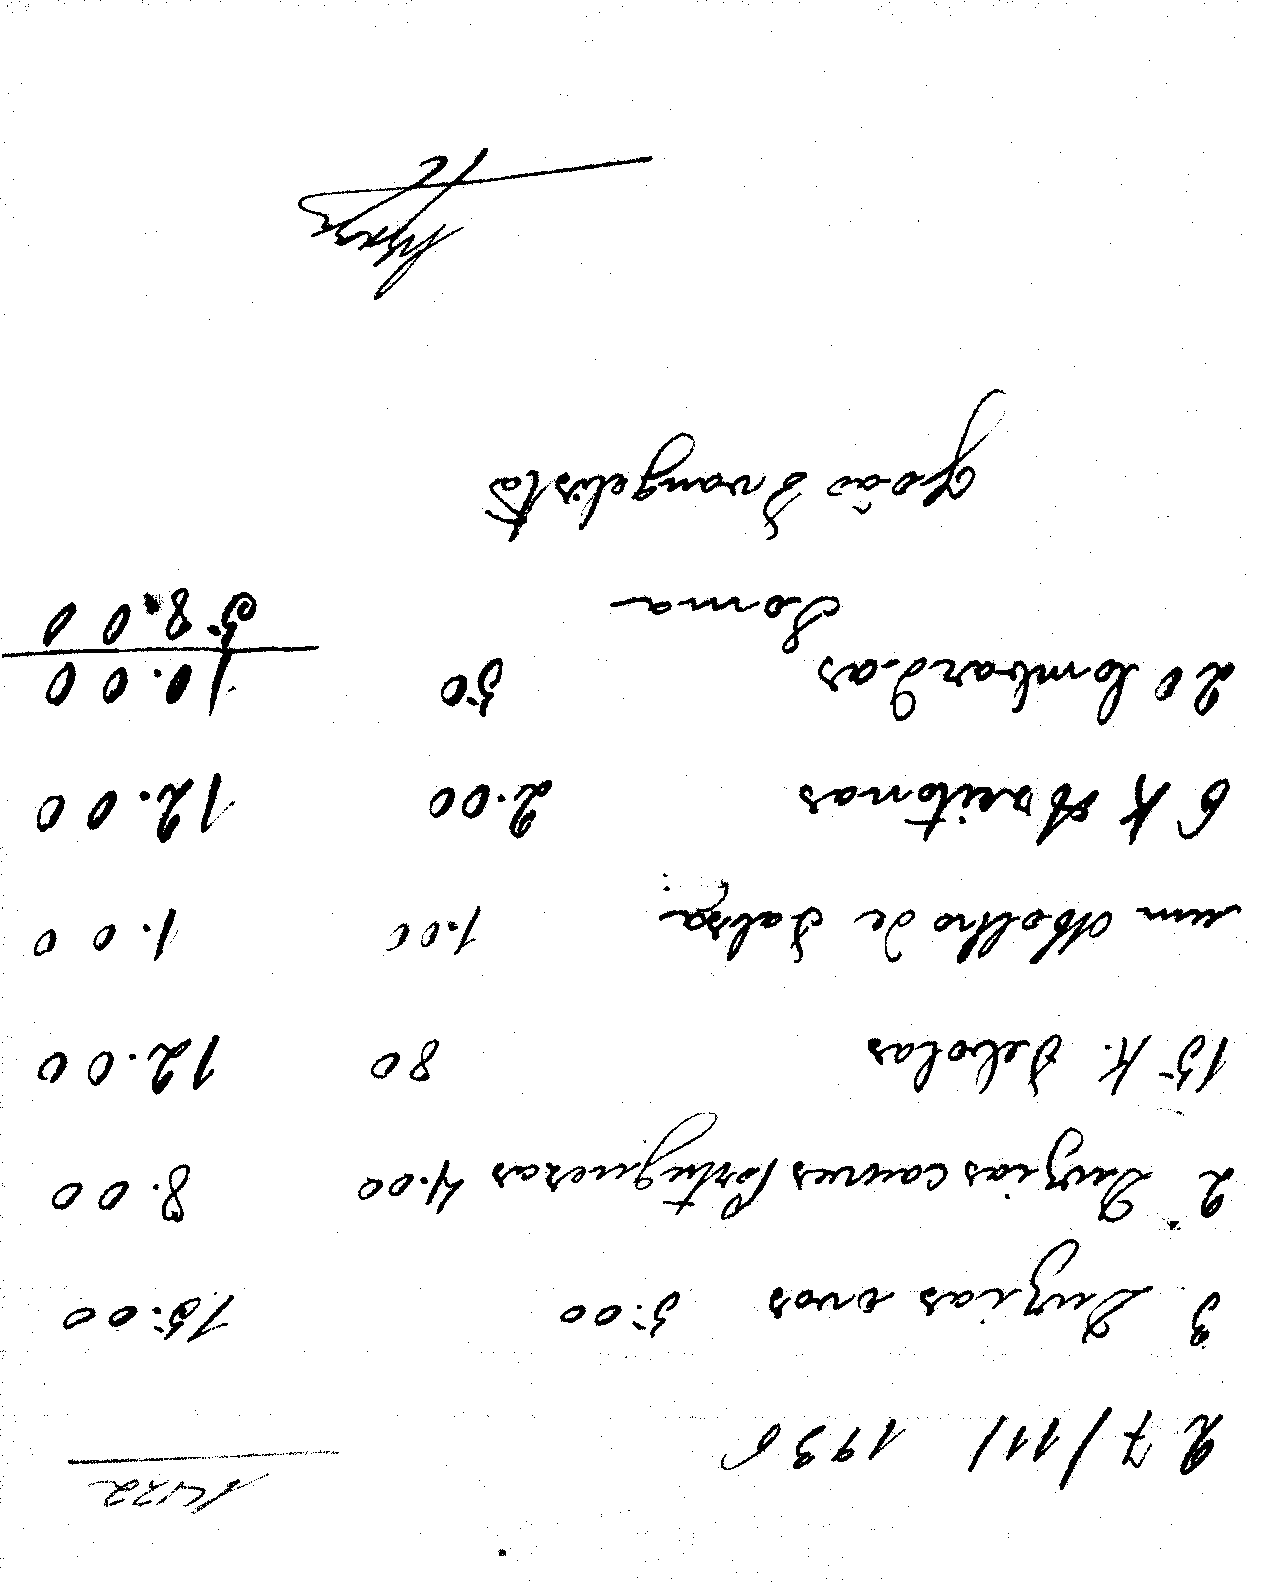 27/11/1936
3 Duzias ovos 5.00 15.00
2 Duzias couves portuguezas 4.00 8.00
15 K. Sebolas 80 12.00
um Molho de Salsa 1.00 1.00
6 K Azeitonas 2.00 12.00
20 lombardas 50 10.00
Soma 58.00
João Evangelista